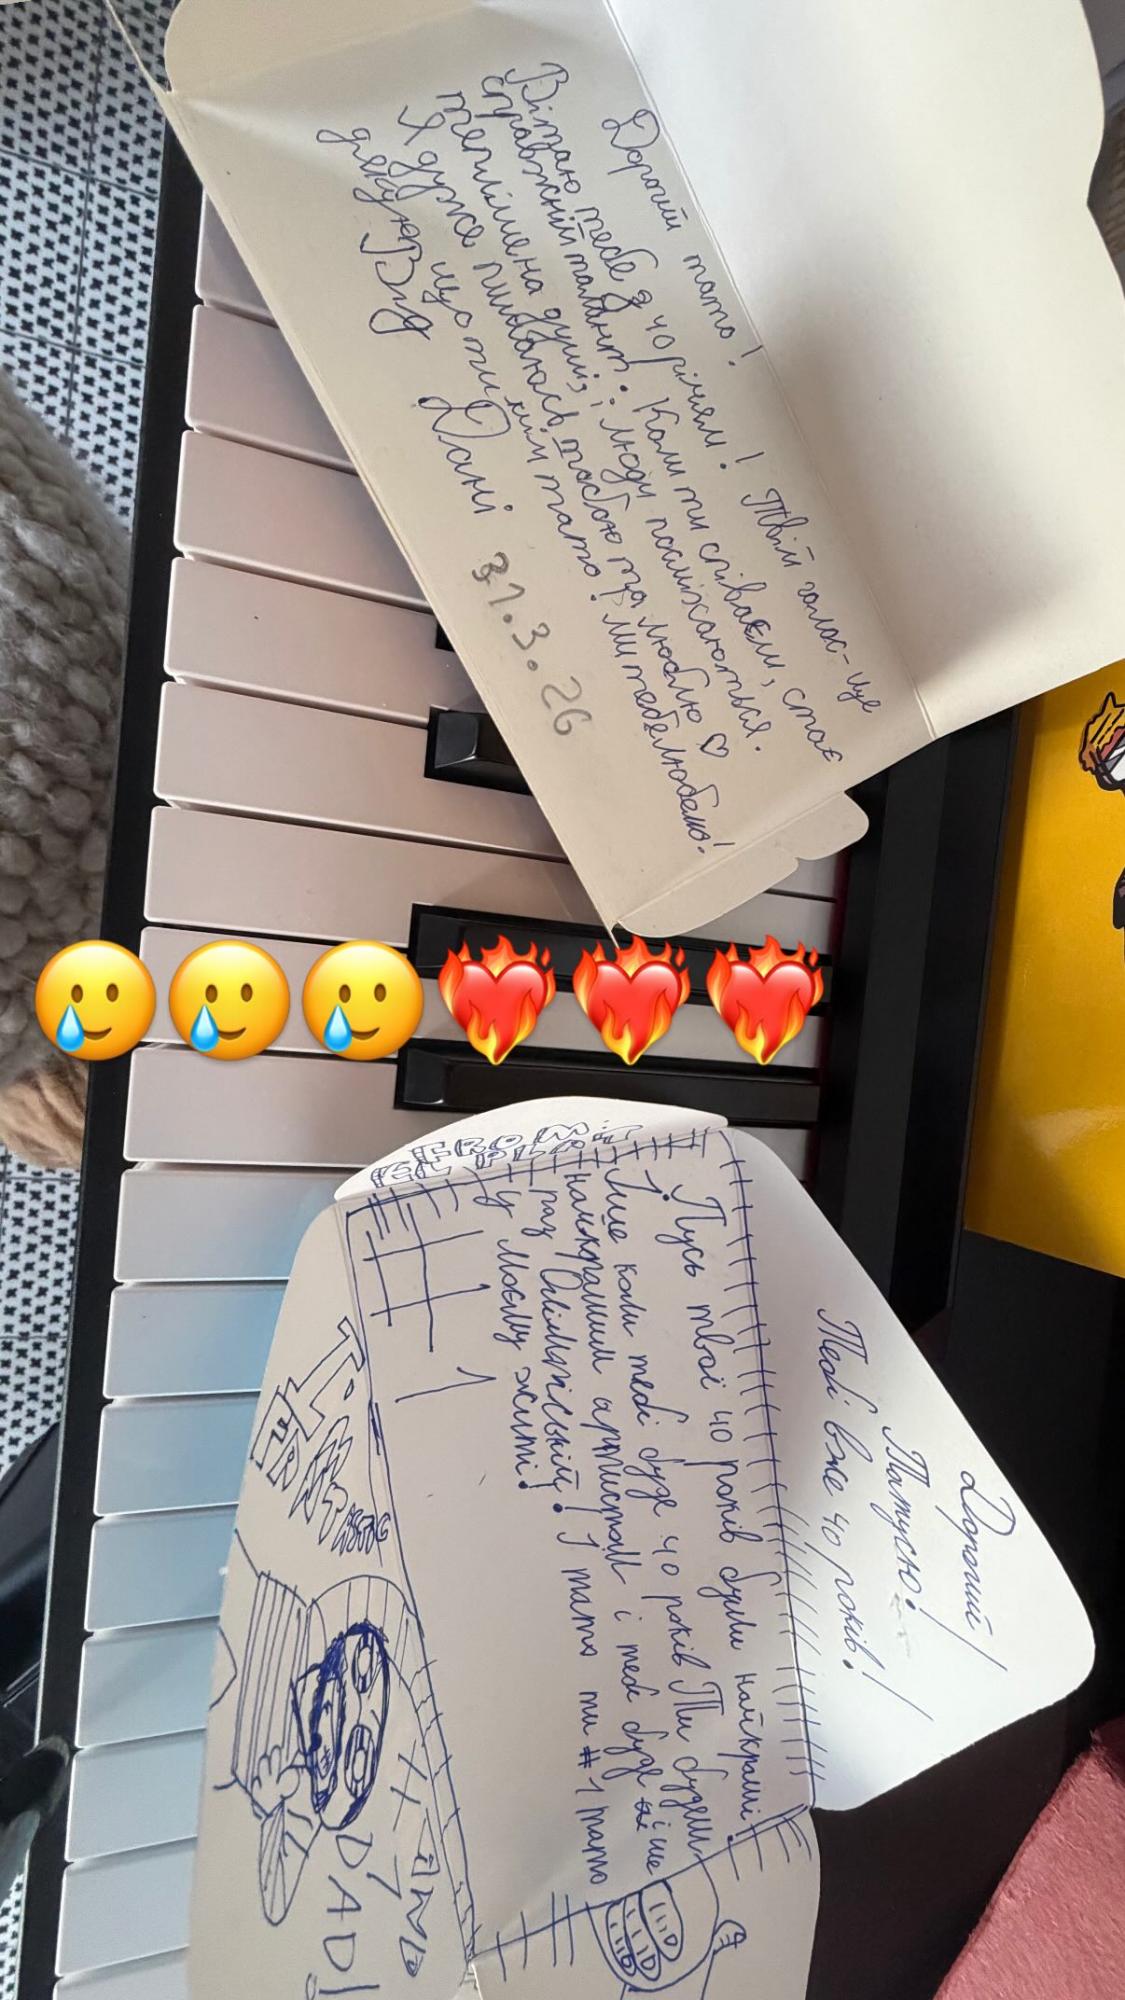 Дорогий тато!
Вітаю тебе з 40 річчям! Твій голос - це
справжній талант. Коли ти співаєш, стає
тепліше на душі, і люди посміхаються.
Я дуже пишаюсь тобою та люблю ♡
дякую що ти наш тато! Ми тебе любемо!
Від Дані
31.3.26
Дорогий
Татусю!
Тобі вже 40 років!
Пусь твої 40 років були найкращі!
Лише коли тобі буде 40 років Ти будеш
найкращим артистом і тобі буде ще
раз Олімпійський! 1 тато ти #1 тато
у моєму житі!
1
FROM:
DAD!